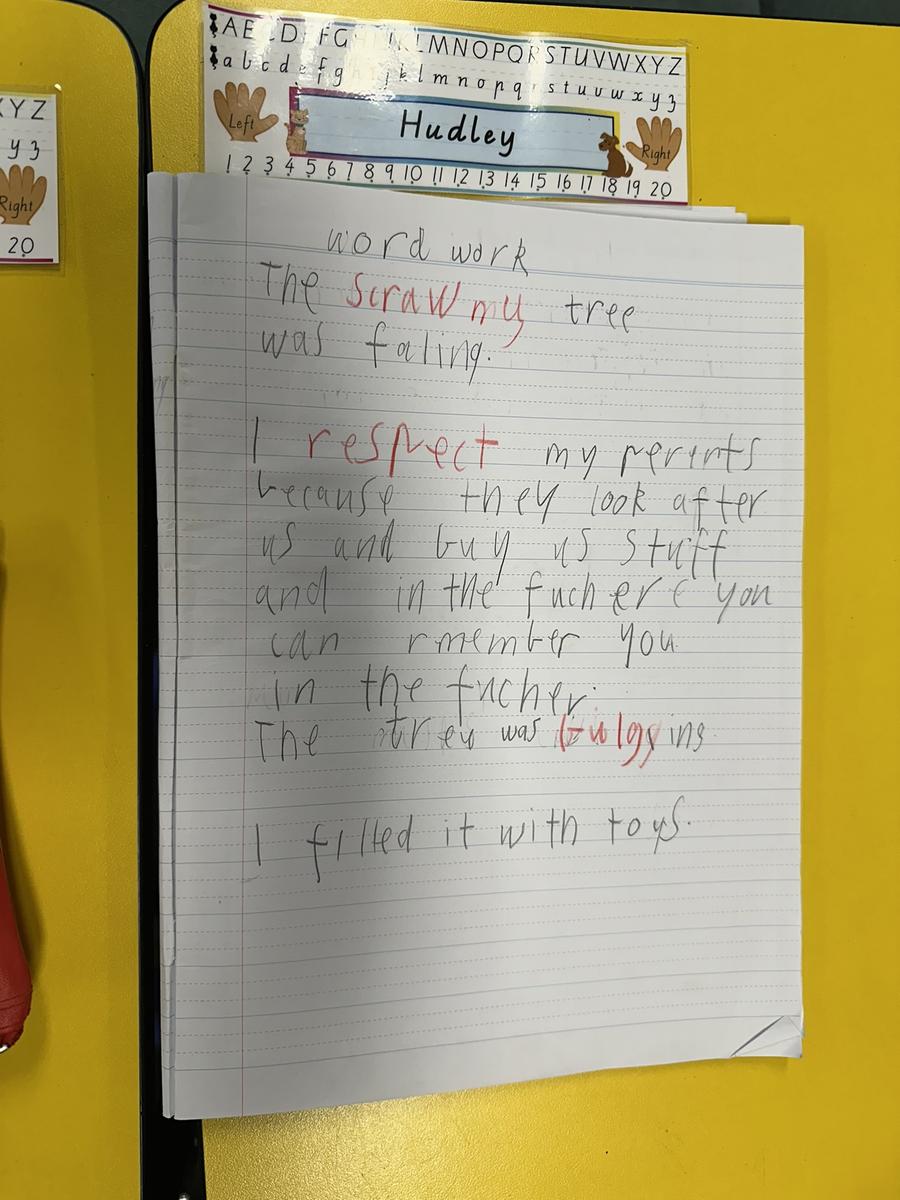 X Y Z
y z
Right
20
A B C D E F G H I J K L M N O P Q R S T U V W X Y Z
a b c d e f g h i j k l m n o p q r s t u v w x y z
Left
Hudley
Right
1 2 3 4 5 6 7 8 9 10 11 12 13 14 15 16 17 18 19 20
word work
The scrawmy tree
was faling.
I respect my perints
because they look after
us and buy us stuff
and in the fuchere you
can rmember you
in the fucher.
The was bulgging
I filled it with toys.